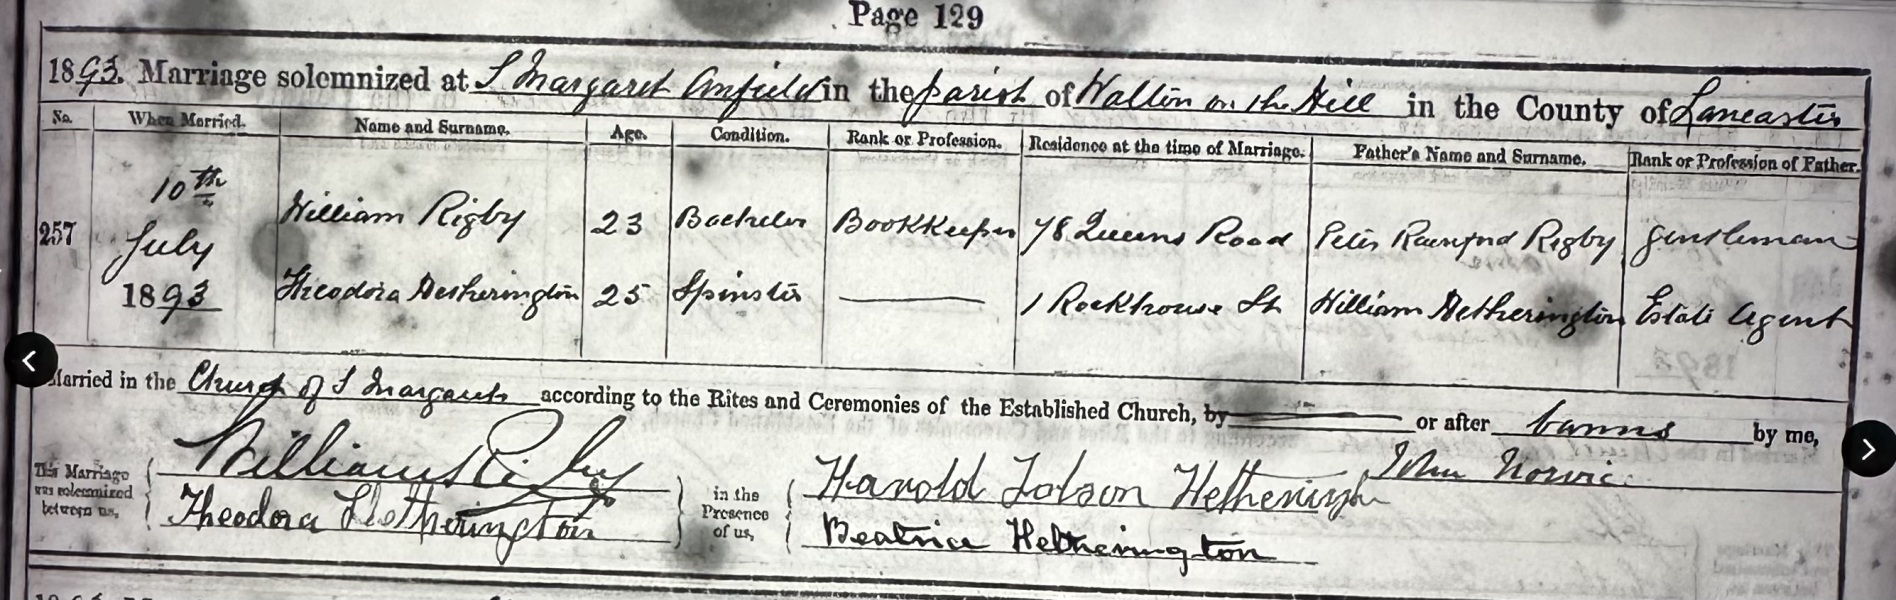 Page 129
1893. Marriage solemnized at S Margaret Anfield in the parish of Walton on the Hill in the County of Lancaster
No. When Married. Name and Surname. Age. Condition. Rank or Profession. Residence at the time of Marriage. Father's Name and Surname. Rank or Profession of Father.
257 10th July 1893 William Rigby 23 Bachelor Bookkeeper 78 Queens Road Peter Rainford Rigby Gentleman
Theodora Hetherington 25 Spinster 1 Rockhouse St William Hetherington Estate Agent
Married in the Church of S Margaret according to the Rites and Ceremonies of the Established Church, by or after banns by me,
John
This Marriage was solemnized between us, William Rigby in the Presence of us, Harold Hetherington
Theodora Hetherington Beatrice Hetherington